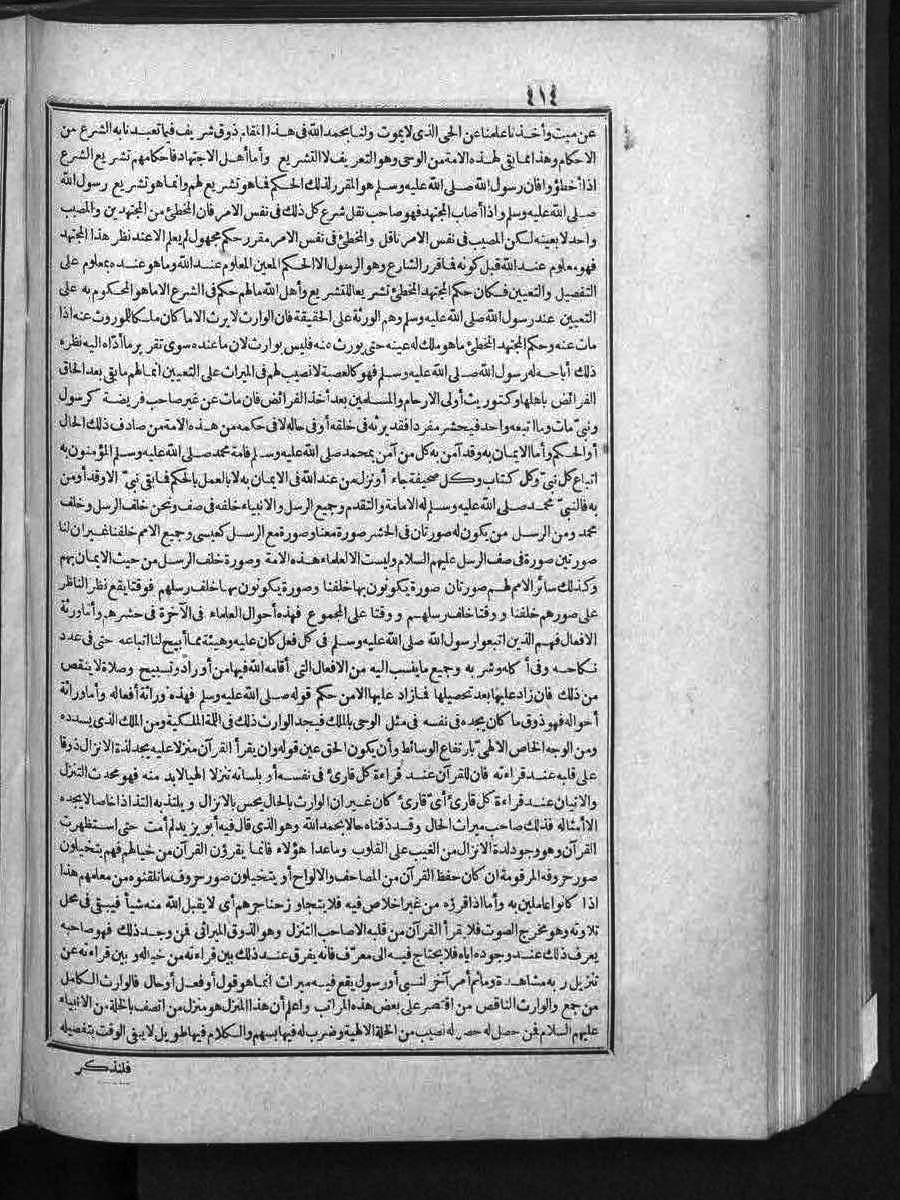 ٤١٤
عن ميت وأخذنا علمنا عن الحى الذى لا يموت ولنا بحمد الله فى هذا المقام ذوق شريف فيما تعبدنا به الشرع من
الاحكام وهذا مما بقى لهذه الامة من الوحى وهو التعريف لا التشريع وأما أهل الاجتهاد فأحكامهم تشريع الشرع
اذا أخطؤا فان رسول الله صلى الله عليه وسلم هو المقرر لذلك الحكم فما هو تشريع لهم وانما هو تشريع رسول الله
صلى الله عليه وسلم واذا أصاب المجتهد فهو صاحب نقل شرع كل ذلك فى نفس الامر فان المخطئ من المجتهدين والمصيب
واحد لا بعينه لكن المصيب فى نفس الامر ناقل والمخطئ فى نفس الامر مقرر حكم مجهول لم يعلم الا عند نظر هذا المجتهد
فهو معلوم عند الله قبل كونه فما قرر الشارع وهو الرسول الا الحكم المعين المعلوم عند الله وما هو عنده بمعلوم على
التفصيل والتعيين فكان حكم المجتهد المخطئ تشريعا للتشريع وأهل الله مالهم حكم فى الشرع الا ما هو المحكوم به على
التعيين عند رسول الله صلى الله عليه وسلم وهم الورثة على الحقيقة فان الوارث لا يرث الا ما كان ملكا للموروث عنه اذا
مات عنه وحكم المجتهد المخطئ ما هو ملك له عينه حتى يورث عنه فليس بوارث لان ما عنده سوى تقرير ما أداه اليه نظره
ذلك أباحه له رسول الله صلى الله عليه وسلم فهو كالعصبة لا نصيب لهم فى الميراث على التعيين انما لهم ما بقى بعد الحاق
الفرائض باهلها وكتوريث أولى الارحام والمسلمين بعد أخذ الفرائض فان مات عن غير صاحب فريضة كرسول
ونبى مات وما اتبعه واحد فيحشر مفردا فقد يرثه فى خلقه أو فى حاله لا فى حكمه من هذه الامة من صادف ذلك الحال
أو الحكم وأما الايمان به وقد آمن به كل من آمن بمحمد صلى الله عليه وسلم فامة محمد صلى الله عليه وسلم المؤمنون به
اتباع كل نبى وكل كتاب وكل صحيفة جاء أو نزل من عند الله فى الايمان به لا بالعمل بالحكم فما بقى نبى الا وقد أومن
به فالنبى محمد صلى الله عليه وسلم له الامامة والتقدم وجميع الرسل والانبياء خلفه فى صف ونحن خلف الرسل وخلف
محمد ومن الرسل من يكون له صورتان فى الحشر صورة معنا وصورة مع الرسل كعيسى وجميع الامم خلفنا غير ان لنا
صورتين صورة فى صف الرسل عليهم السلام وليست الا لعلماء هذه الامة وصورة خلف الرسل من حيث الايمان بهم
وكذلك سائر الامم لهم صورتان صورة يكونون بها خلفنا وصورة يكونون بها خلف رسلهم فوقتا يقع نظر الناظر
على صورهم خلفنا ووقتا خلف رسلهم ووقتا على المجموع فهذه أحوال العلماء فى الآخرة فى حشرهم وأما ورثة
الافعال فهم الذين اتبعوا رسول الله صلى الله عليه وسلم فى كل فعل كان عليه وهيئة مما أبيح لنا اتباعه حتى فى عدد
نكاحه وفى أكله وشربه وجميع ما ينسب اليه من الافعال التى أقامه الله فيها من أوراد وتسبيح وصلاة لا ينقص
من ذلك فان زاد عليها بعد تحصيلها فما زاد عليها الا من حكم قوله صلى الله عليه وسلم فهذه وراثة أفعاله وأما وراثة
أحواله فهو ذوق ما كان يجده فى نفسه فى مثل الوحى بالملك فيجد الوارث ذلك فى اللمة الملكية ومن الملك الذى يسدده
ومن الوجه الخاص الالهى بارتفاع الوسائط وأن يكون الحق عين قوله وان يقرأ القرآن منزلا عليه يجد لذة الانزال ذوقا
على قلبه عند قراءته فان للقرآن عند قراءة كل قارئ فى نفسه أو بلسانه تنزلا الهيا لابد منه فهو محدث التنزل
والاتيان عند قراءة كل قارئ أى قارئ كان غير ان الوارث بالحال يحس بالانزال ويلتذ به التذاذا خاصا لا يجده
الا أمثاله فذلك صاحب ميراث الحال وقد ذقناه حالا بحمد الله وهو الذى قال فيه أبو يزيد لم أمت حتى استظهرت
القرآن وهو وجود لذة الانزال من الغيب على القلوب وما عدا هؤلاء فانما يقرؤن القرآن من خيالهم فهم يتخيلون
صور حروفه المرقومة ان كان حفظ القرآن من المصاحف والالواح أو يتخيلون صور حروف ما تلقنوه من معلمهم هذا
اذا كانوا عاملين به وأما اذا قرؤه من غير اخلاص فيه فلا يتجاوز حناجرهم أى لا يقبل الله منه شيأ فيبقى فى محل
تلاوته وهو مخرج الصوت فلا يقرأ القرآن من قلبه الا صاحب التنزل وهو الذوق الميراثى فمن وجد ذلك فهو صاحبه
يعرف ذلك عند وجوده اياه فلا يحتاج فيه الى معرّف فانه يفرق عند ذلك بين قراءته من خياله وبين قراءته عن
تنزيل ربه مشاهدة وما ثم أمر آخر لنبى أو رسول يقع فيه ميراث انما هو قول أو فعل أو حال فالوارث الكامل
من جمع والوارث الناقص من اقتصر على بعض هذه المراتب واعلم أن هذا المنزل هو منزل من اتصف بالخلة من الانبياء
عليهم السلام فمن حصل له حصل له نصيب من الخلة الالهية وضرب له فيها بسهم والكلام فيها طويل لا يفى الوقت بتفصيله
فلنذكر